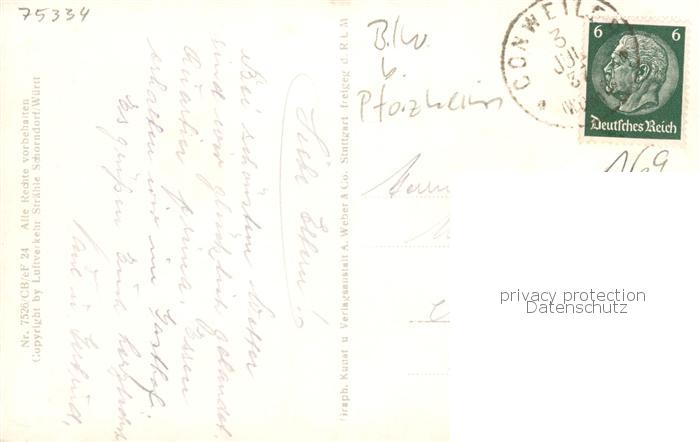 75334
Nr. 7526/CB/eF 24 Alle Rechte vorbehalten
Copyright by Luftverkehr Strähle Schorndorf/Württ
Liebe Eltern!
Bei schönstem Wetter
sind wir glücklich gelandet.
Quartier prima. Essen
erhalten wir im Gasthof
Es grüßen Euch herzlichst
Paul u.
Graph. Kunst u Verlagsanstalt A. Weber & Co. Stuttgart freigeg d. R.L.M
b.
Pforzheim
CONWEILER
3
JUL
6 6
Deutsches Reich
169
privacy protection
Datenschutz